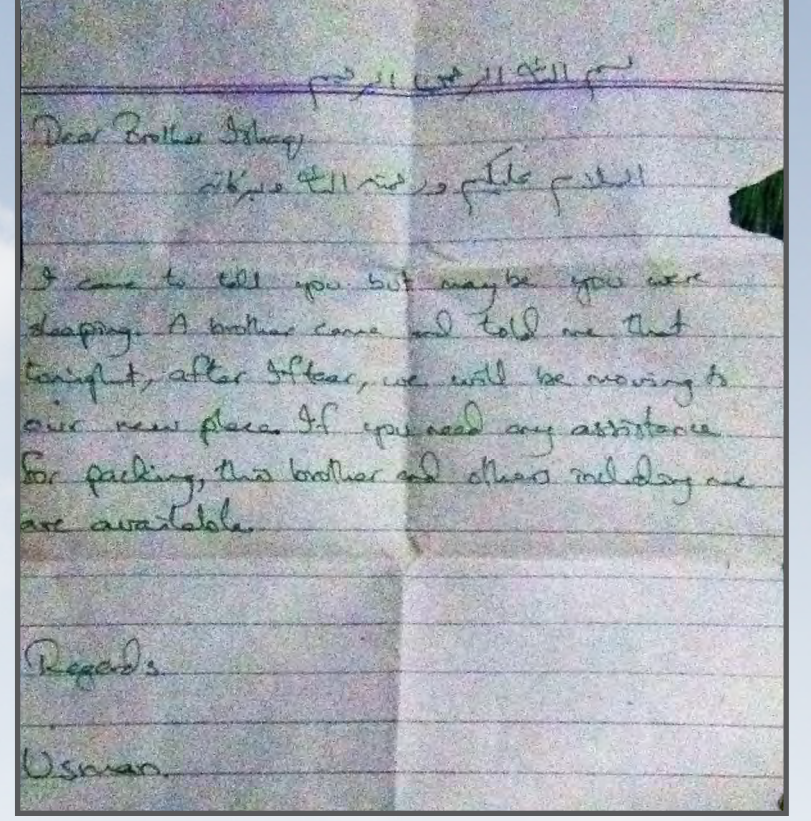 بسم الله الرحمن الرحيم
Dear Brother Ishaq
السلام عليكم ورحمة الله وبركاته
I came to tell you but maybe you were
sleeping. A brother came and told me that
tonight, after Iftar, we will be moving to
our new place. If you need any assistance
for packing, this brother and others including me
are available.
Regards
Usman.